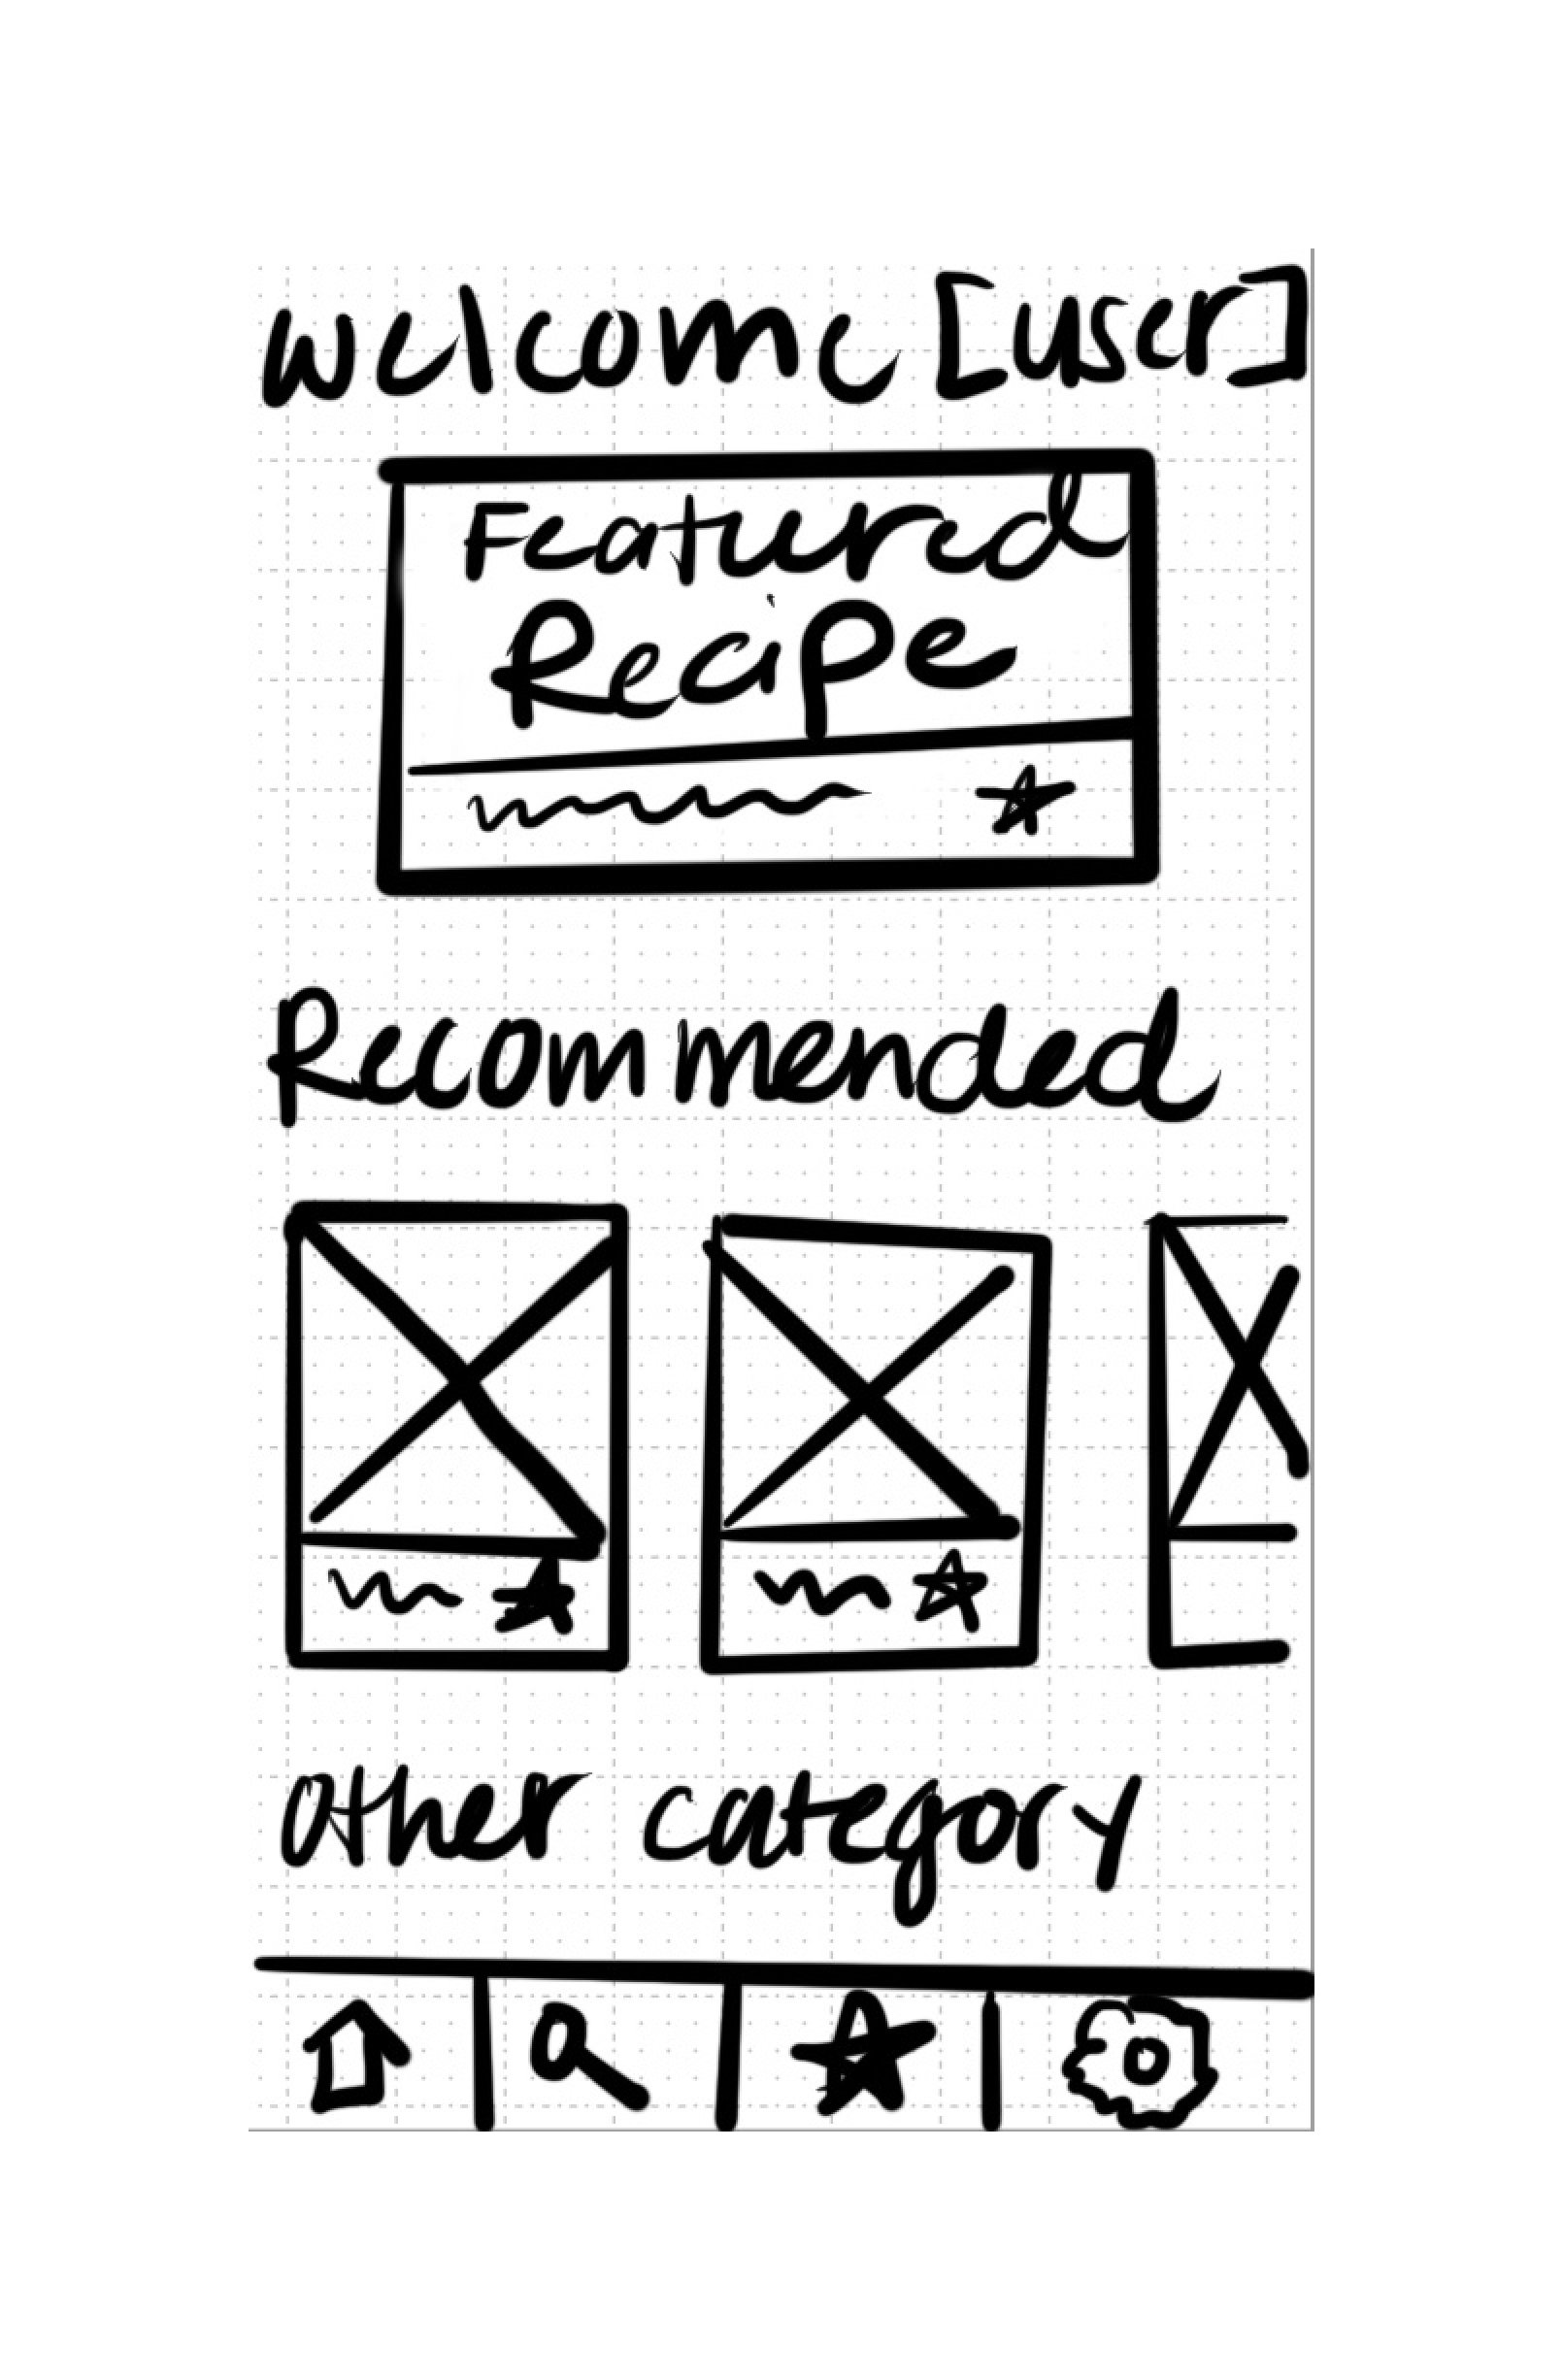 Welcome [user]
Featured
Recipe
Recommended
Other category